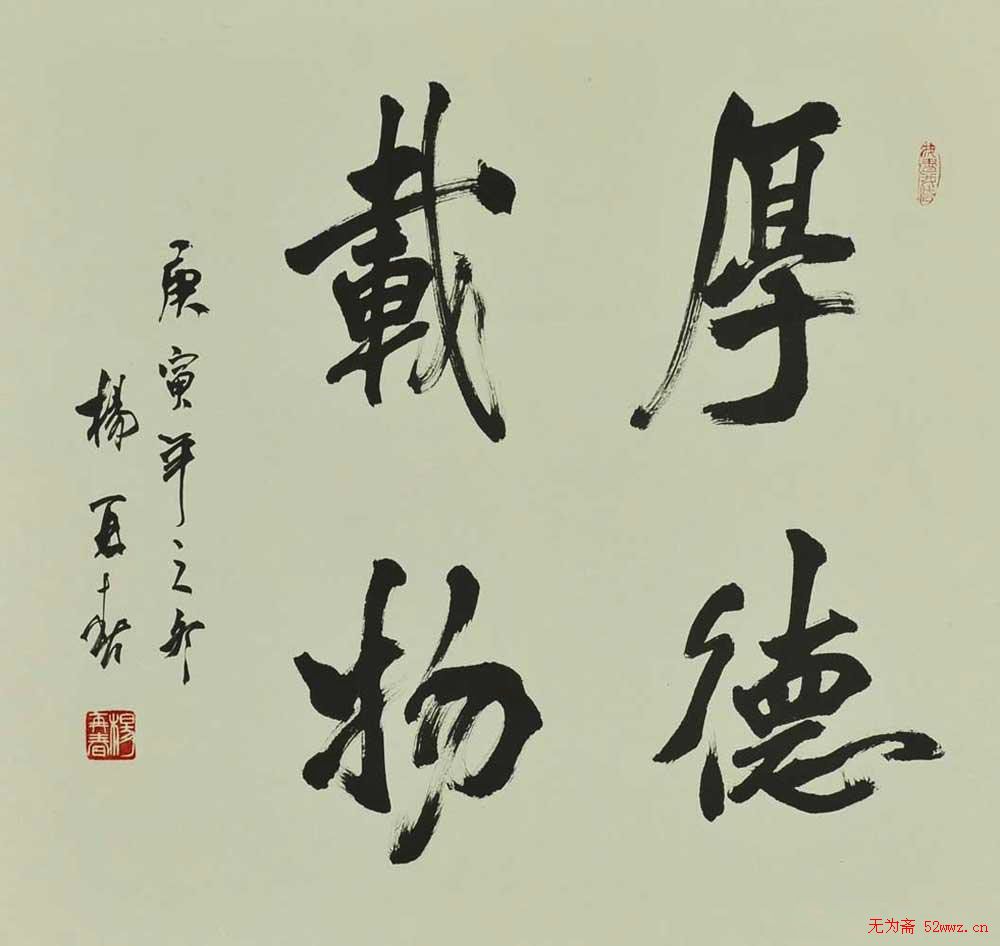 厚德
載物
庚寅年之
楊再春
楊再春
无为斋 52wwz.cn